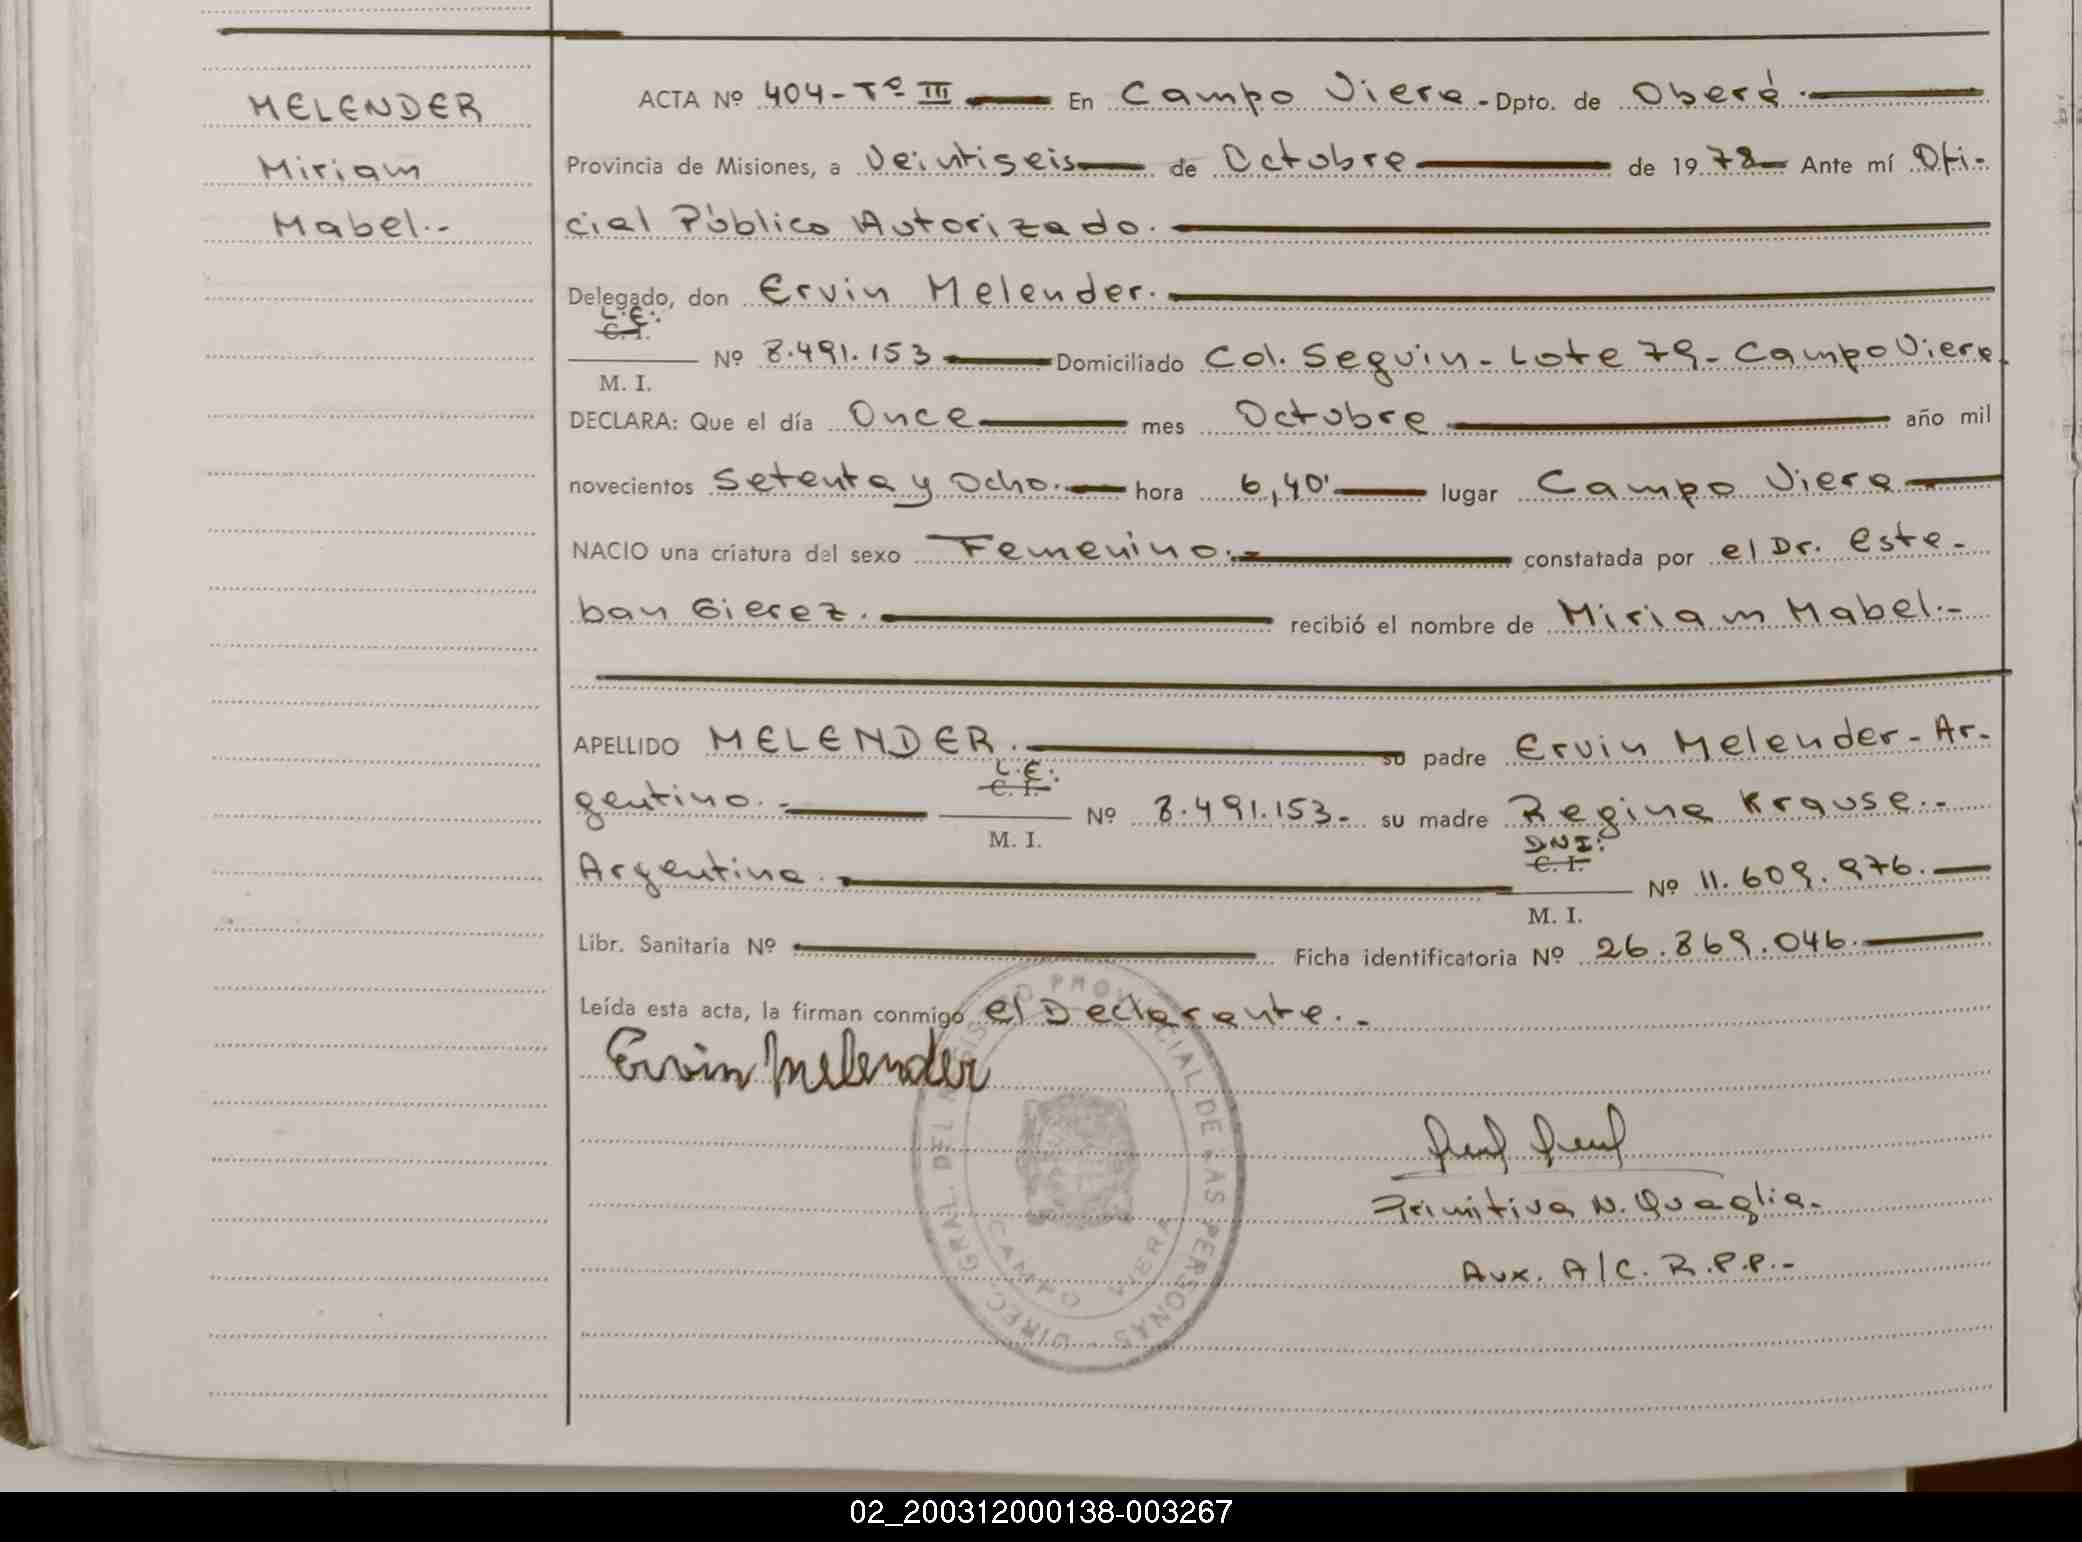 MELENDER
Miriam
Mabel.-
ACTA Nº 404-Tº III En Campo Viera - Dpto. de Oberá.
Provincia de Misiones, a Veintiseis de Octubre de 1978 Ante mí Ofi-
cial Público Autorizado.
Delegado, don Ervin Melender.
L.E.:
C. I.
Nº 8.491.153 Domiciliado Col. Seguin - Lote 79 - Campo Viera.
M. I.
DECLARA: Que el día Once mes Octubre año mil
novecientos Setenta y Ocho. hora 6,40' lugar Campo Viera
NACIO una criatura del sexo Femenino.- constatada por el Dr. Este-
ban Gierez. recibió el nombre de Miriam Mabel.-
APELLIDO MELENDER. su padre Ervin Melender - Ar-
L.E.:
C. I.
gentino.- Nº 8.491.153- su madre Regina Krause.-
M. I.
DNI:
C. I.
Argentina. Nº 11.609.976.
M. I.
Libr. Sanitaria Nº Ficha identificatoria Nº 26.869.046.
Leída esta acta, la firman conmigo el Declarante.-
Ervin Melender
DIREC. GRAL. DEL REGISTRO PROVINCIAL DE LAS PERSONAS -
CAMPO VIERA
Primitiva N. Quaglia.
Aux. A/C. R.P.P.-
02_200312000138-003267